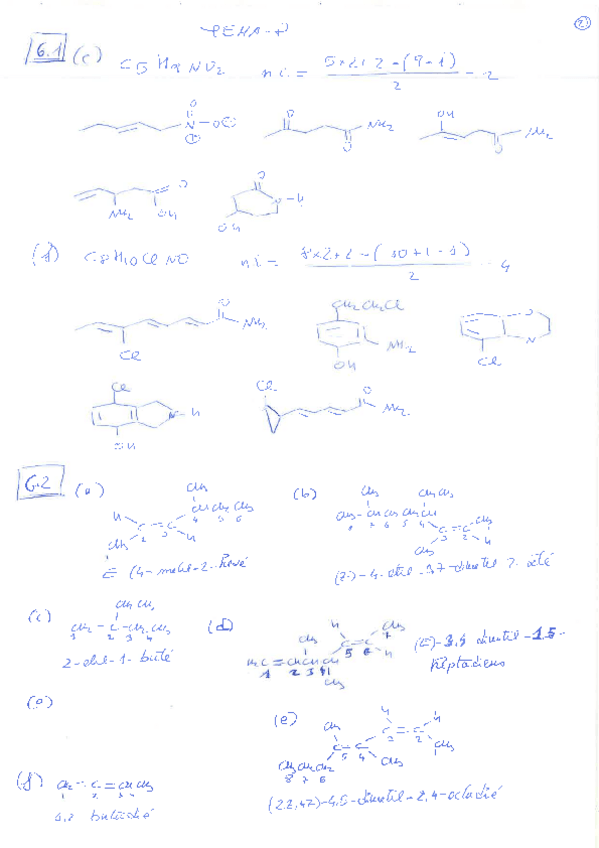 TEMA-6
2
6.1 (c) C5H9NO2 n i = 5x2+2-(9-1) / 2 = 2
O
N O
O NH2 O
OH NH2 O
O
NH2 OH
O N-H
OH
C8H10ClNO n i = 8x2+2-(10+1-1) / 2 = 4
O NH2
Cl
CH2CH2Cl
NH2
OH
O
N
Cl
Cl
N-H
OH
Cl
O
NH2
6.2 (a)
CH3
H CHCH2CH3
C=C 4 5 6
CH3 2 3 H
E (4-metil-2-
(b)
CH3 CH2CH3
CH3-CHCH2CH2CH CH3
8 7 6 5 4 C=C
CH3 3 2 H
(Z)-4-etil-3,7-dimetil-2-
(c)
CH2CH3
CH2=C-CH2CH3
1 2 3 4
2-etil-1-buté
(d)
H CH3
CH3 C=C 7
H2C=CHCHCH 5 6 H
1 2 3 4
CH3
(E)-3,4-dimetil-1,5-
heptadiens
(e)
(e)
H H
CH3 C=C
C=C 3 2 CH3
5 4 CH3
CH3CH2CH2
8 7 6
(2Z,4Z)-4,5-dimetil-2,4-octadié
(f) CH2=C=CHCH3
1 2 3 4
1,2 butadié